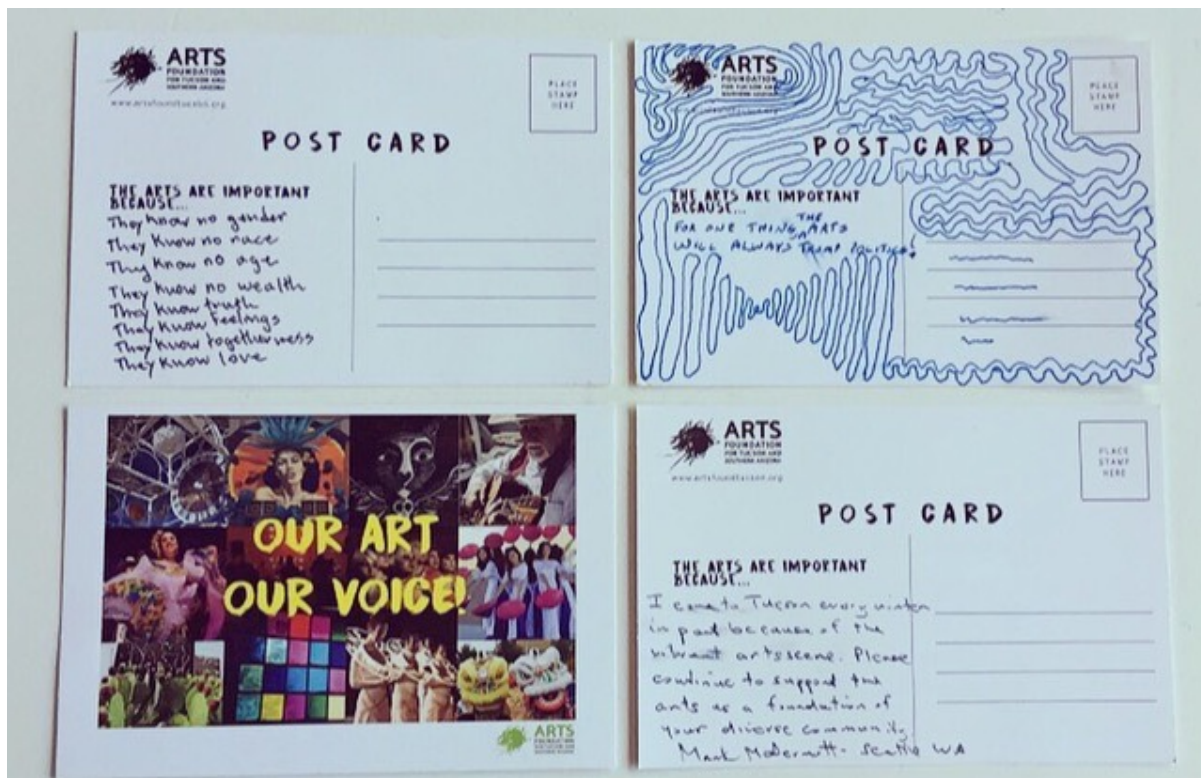 ARTS
FOUNDATION
FOR TUCSON AND
SOUTHERN ARIZONA
www.artsfoundtucson.org
PLACE
STAMP
HERE
POST CARD
THE ARTS ARE IMPORTANT
BECAUSE...
They know no gender
They know no race
They know no age
They know no wealth
They know truth
They know feelings
They know togetherness
They know love
ARTS
FOUNDATION
FOR TUCSON AND
SOUTHERN ARIZONA
PLACE
STAMP
HERE
POST CARD
THE ARTS ARE IMPORTANT
BECAUSE...
FOR ONE THING, THE ARTS
WILL ALWAYS TRUMP POLITICS!
OUR ART
OUR VOICE!
ARTS
FOUNDATION
ARTS
FOUNDATION
FOR TUCSON AND
SOUTHERN ARIZONA
www.artsfoundtucson.org
PLACE
STAMP
HERE
POST CARD
THE ARTS ARE IMPORTANT
BECAUSE...
I come to Tucson every winter
in part because of the
vibrant arts scene. Please
continue to support the
arts as a foundation of
your diverse community
Mark McDermott - Seattle WA